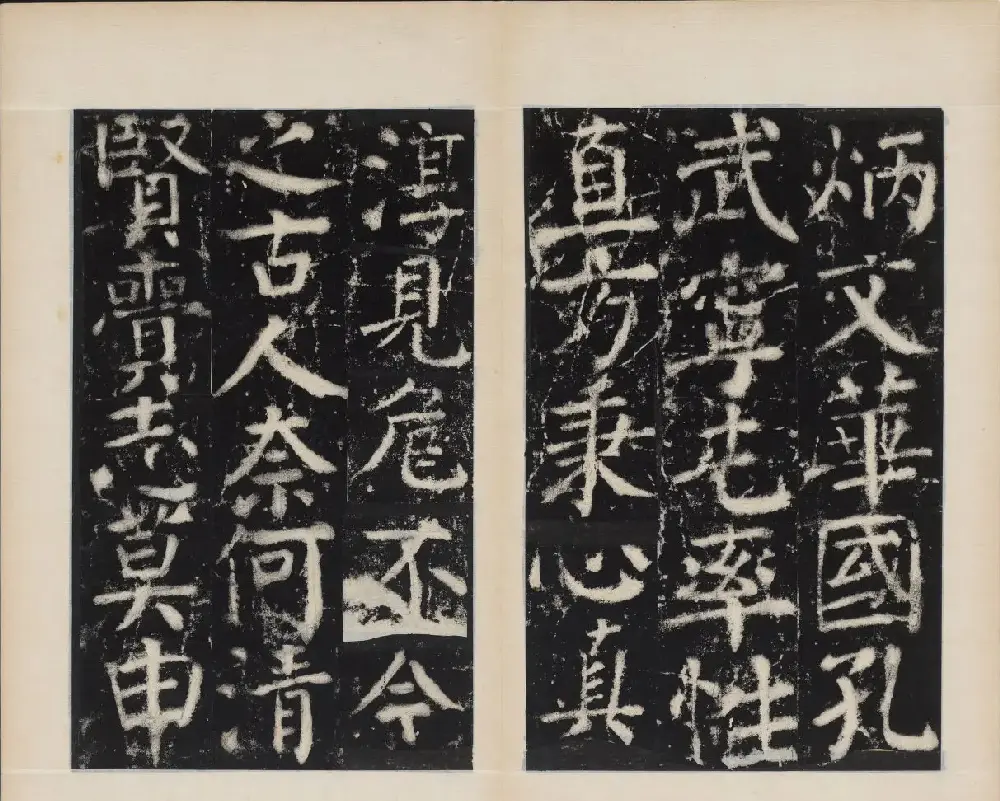 炳文華國孔
武寧屯率性
直方秉心真
淳見危不今
之古人奈何清
賢賫志莫申